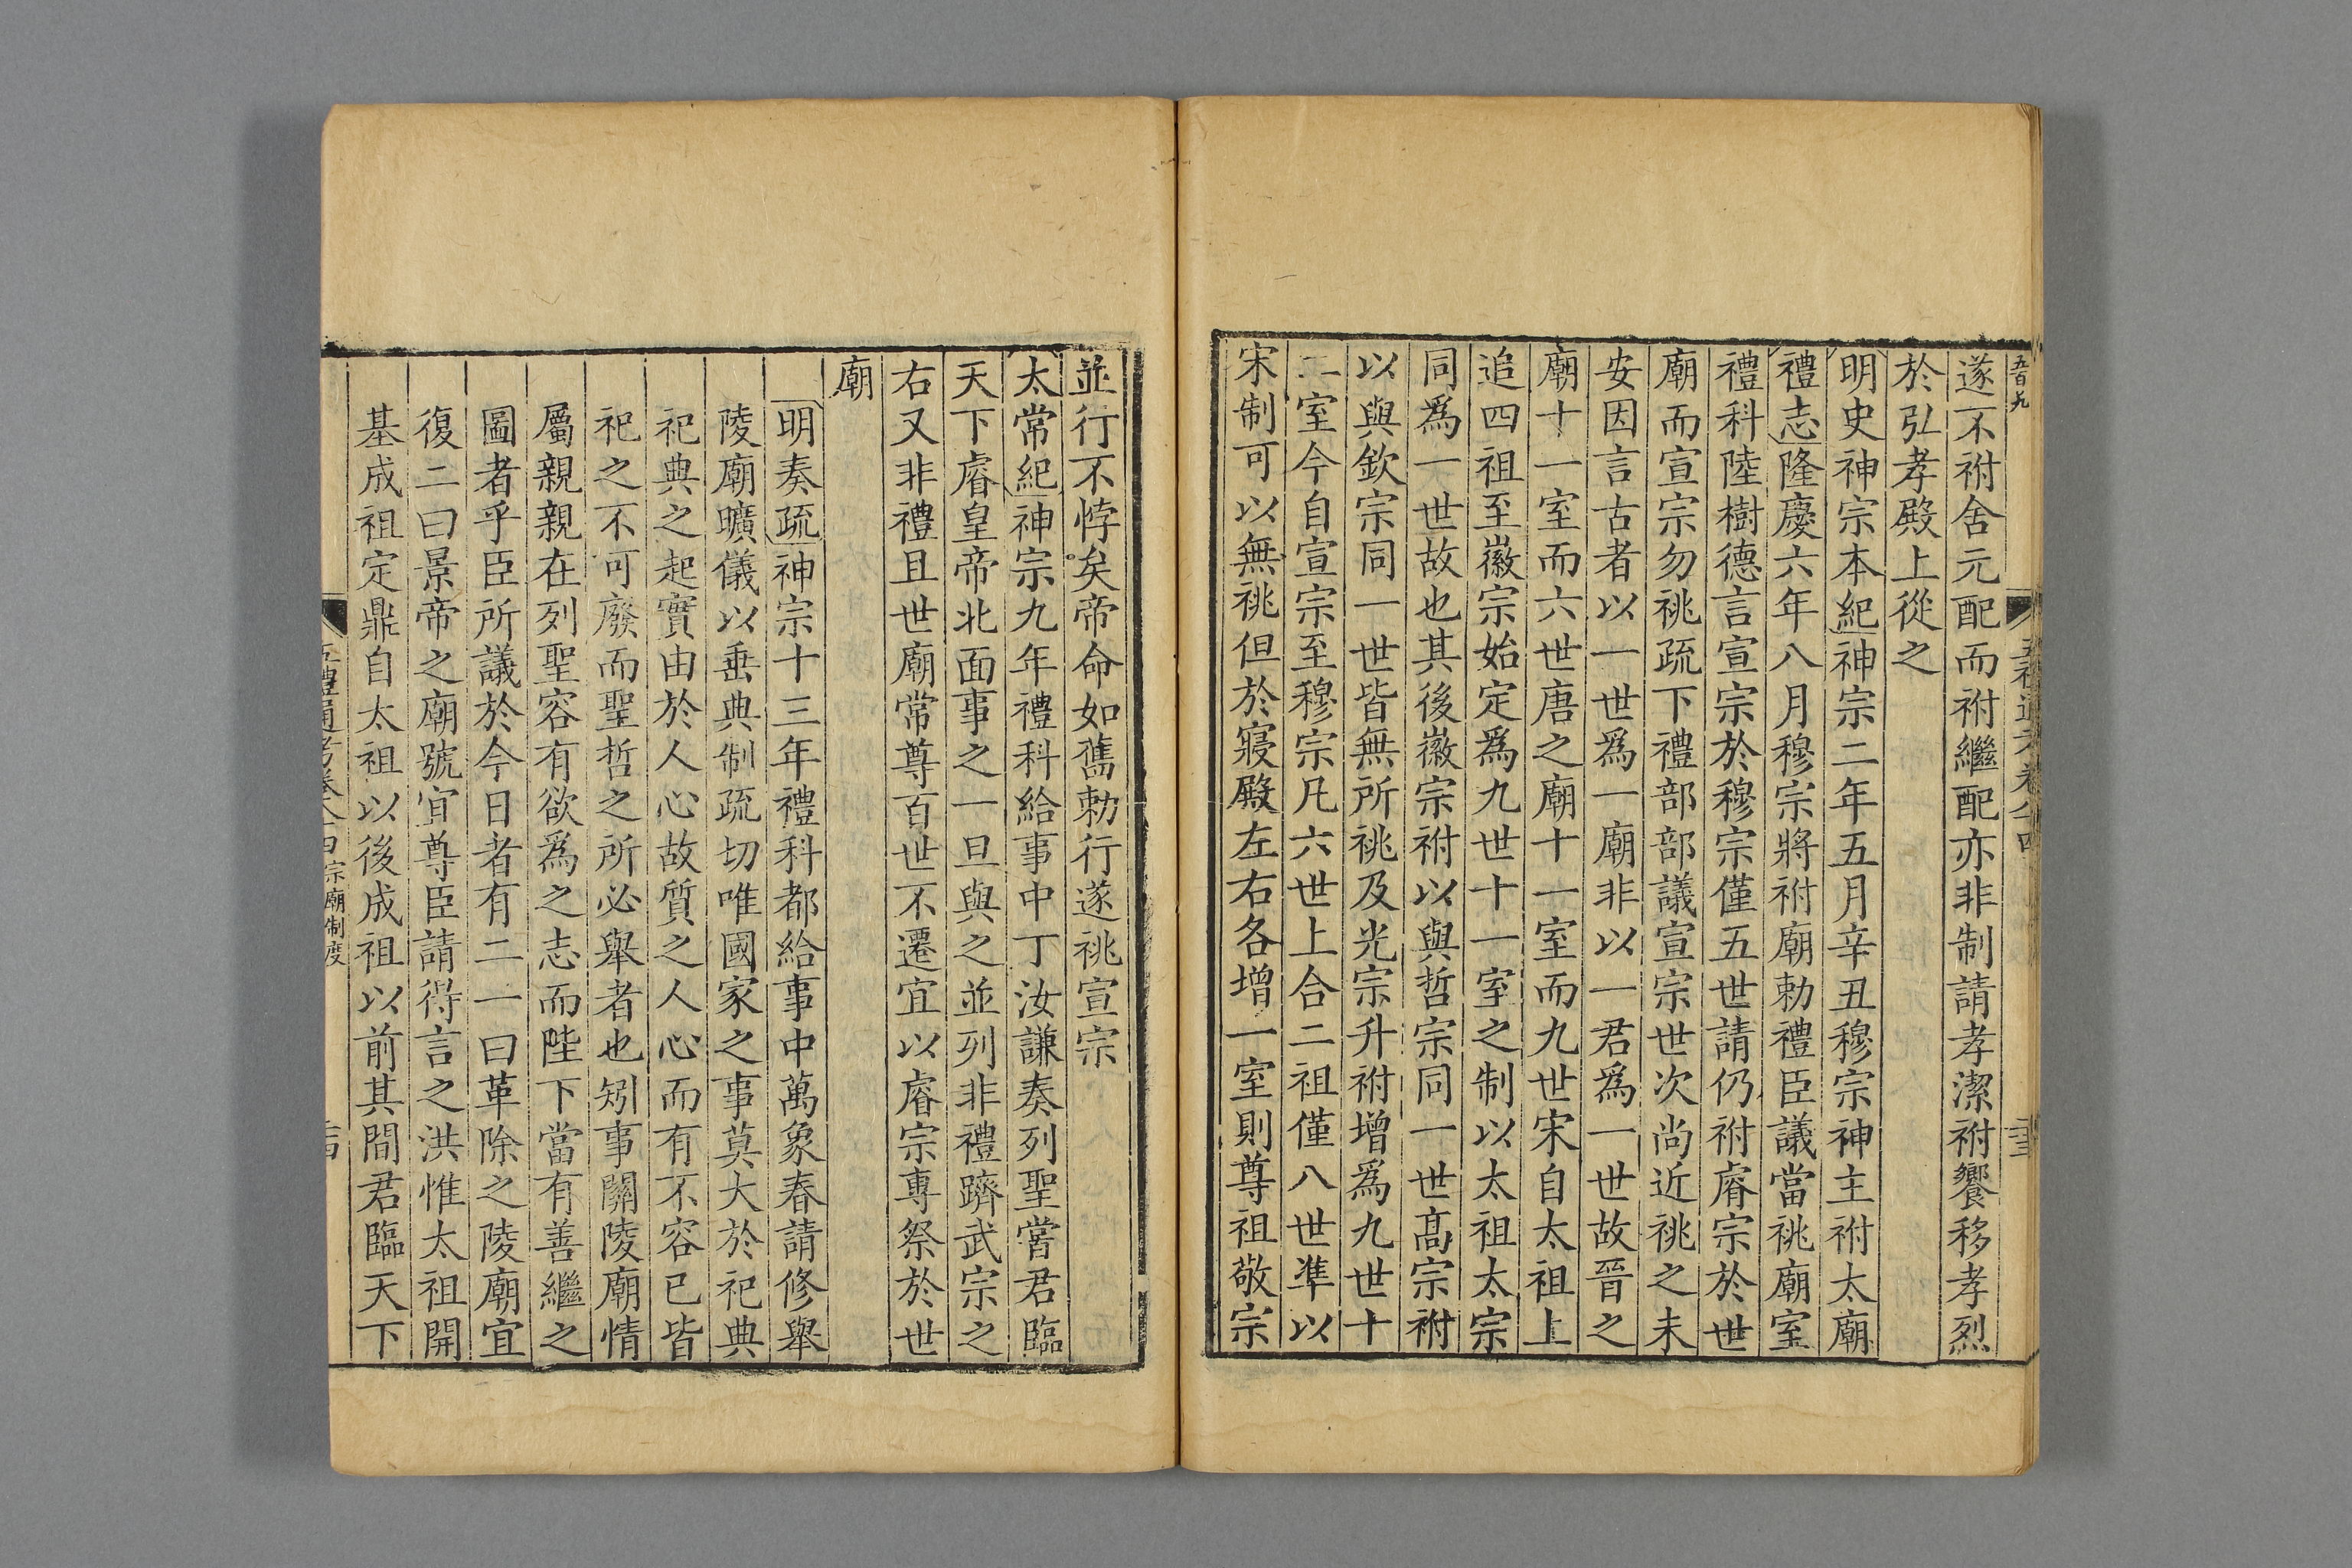 遂不祔舍元配而祔繼配亦非制請孝潔祔饗移孝烈
於弘孝殿上從之
明史神宗本紀神宗二年五月辛丑穆宗神主祔太廟
禮志隆慶六年八月穆宗將祔廟勅禮臣議當祧廟室
禮科陸樹德言宣宗於穆宗僅五世請仍祔睿宗於世
廟而宣宗勿祧疏下禮部部議宣宗世次尚近祧之未
安因言古者以一世爲一廟非以一君爲一世故晉之
廟十一室而六世唐之廟十一室而九世宋自太祖上
追四祖至徽宗始定爲九世十一室之制以太祖太宗
同爲一世故也其後徽宗祔以與哲宗同一世高宗祔
以與欽宗同一世皆無所祧及光宗升祔增爲九世十
二室今自宣宗至穆宗凡六世上合二祖僅八世準以
宋制可以無祧但於寢殿左右各增一室則尊祖敬宗
並行不悖矣帝命如舊勅行遂祧宣宗
太常紀神宗九年禮科給事中丁汝謙奏列聖嘗君臨
天下睿皇帝北面事之一旦與之並列非禮躋武宗之
右又非禮且世廟常尊百世不遷宜以睿宗專祭於世
廟
明奏疏神宗十三年禮科都給事中萬象春請修舉
陵廟曠儀以垂典制疏切唯國家之事莫大於祀典
祀典之起實由於人心故質之人心而有不容已皆
祀之不可廢而聖哲之所必舉者也矧事關陵廟情
屬親親在列聖容有欲爲之志而陛下當有善繼之
圖者乎臣所議於今日者有二一曰革除之陵廟宜
復二曰景帝之廟號宜尊臣請得言之洪惟太祖開
基成祖定鼎自太祖以後成祖以前其間君臨天下
五禮通考卷八十四 宗廟制度